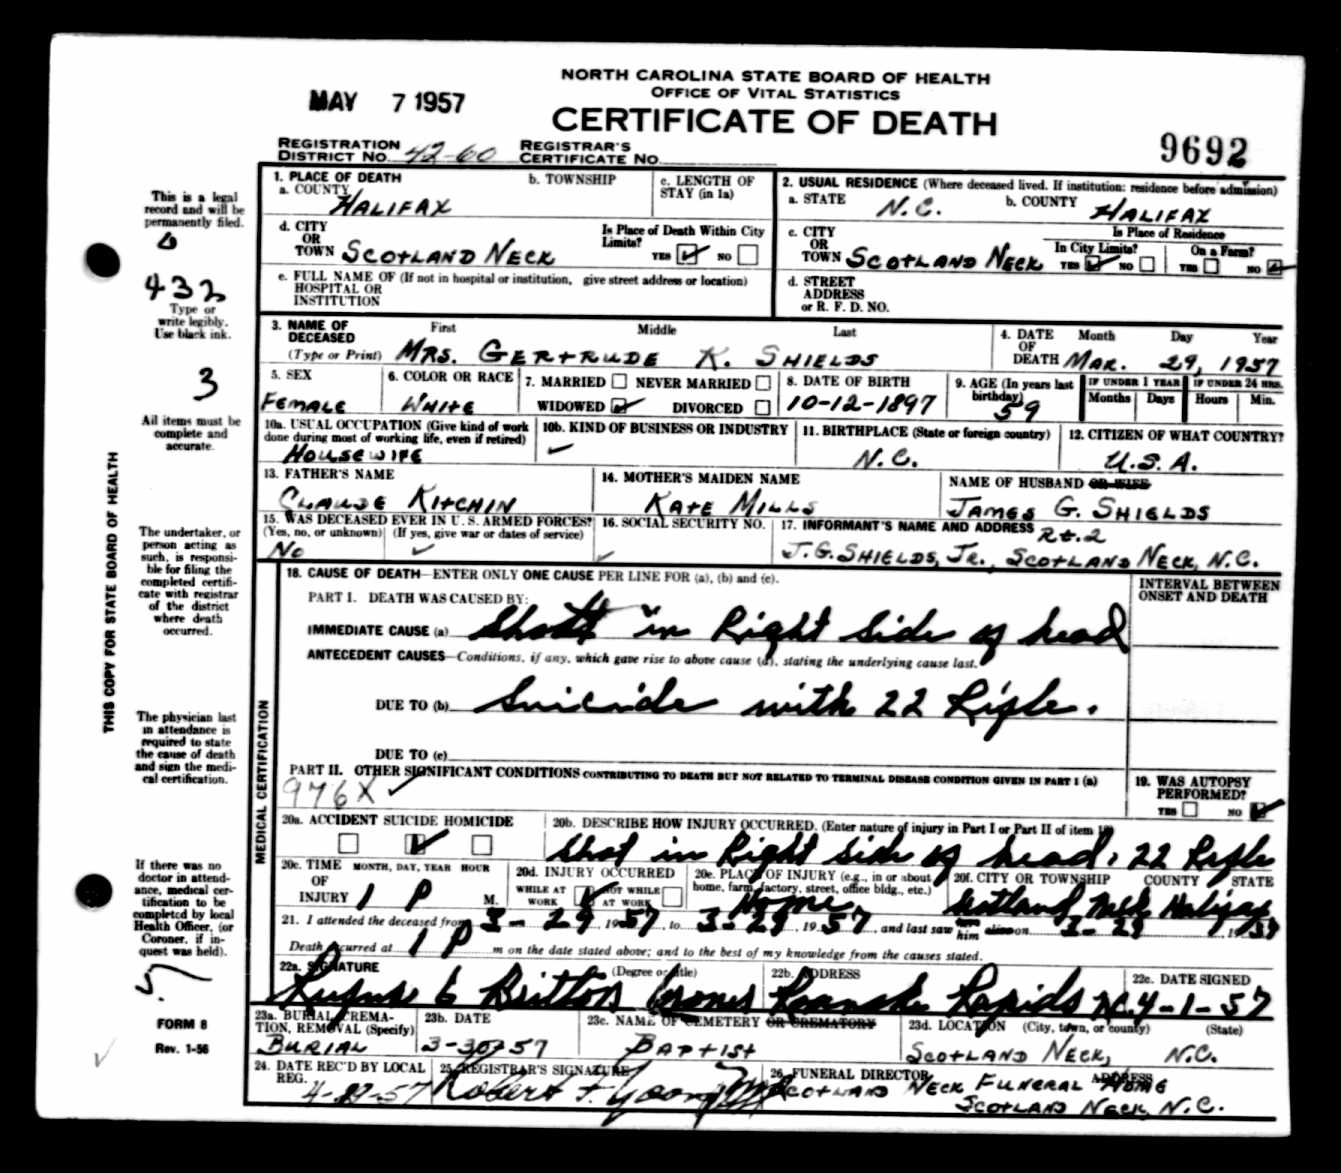 NORTH CAROLINA STATE BOARD OF HEALTH
OFFICE OF VITAL STATISTICS
MAY 7 1957
CERTIFICATE OF DEATH
9692
REGISTRATION DISTRICT NO. 42-60 REGISTRAR'S CERTIFICATE NO.
This is a legal record and will be permanently filed.
432
Type or write legibly. Use black ink.
3
All items must be complete and accurate.
The undertaker, or person acting as such, is responsible for filing the completed certificate with registrar of the district where death occurred.
The physician last in attendance is required to state the cause of death and sign the medical certification.
If there was no doctor in attendance, medical certification to be completed by local Health Officer, (or Coroner, if inquest was held).
5
FORM 8
Rev. 1-56
THIS COPY FOR STATE BOARD OF HEALTH
MEDICAL CERTIFICATION
1. PLACE OF DEATH
a. COUNTY HALIFAX
b. TOWNSHIP
c. LENGTH OF STAY (in 1a)
2. USUAL RESIDENCE (Where deceased lived. If institution: residence before admission)
a. STATE N.C. b. COUNTY HALIFAX
d. CITY OR TOWN SCOTLAND NECK
Is Place of Death Within City Limits? YES NO
c. CITY OR TOWN SCOTLAND NECK
Is Place of Residence
In City Limits? YES NO On a Farm? YES NO
e. FULL NAME OF (If not in hospital or institution, give street address or location)
HOSPITAL OR INSTITUTION
d. STREET ADDRESS or R. F. D. NO.
3. NAME OF DECEASED (Type or Print) First Middle Last
MRS. GERTRUDE K. SHIELDS
4. DATE OF DEATH Month Day Year
MAR. 29, 1957
5. SEX FEMALE
6. COLOR OR RACE WHITE
7. MARRIED NEVER MARRIED
WIDOWED DIVORCED
8. DATE OF BIRTH 10-12-1897
9. AGE (In years last birthday) 59
IF UNDER 1 YEAR Months Days
IF UNDER 24 HRS. Hours Min.
10a. USUAL OCCUPATION (Give kind of work done during most of working life, even if retired) HOUSEWIFE
10b. KIND OF BUSINESS OR INDUSTRY
11. BIRTHPLACE (State or foreign country) N.C.
12. CITIZEN OF WHAT COUNTRY? U.S.A.
13. FATHER'S NAME CLAUDE KITCHIN
14. MOTHER'S MAIDEN NAME KATE MILLS
NAME OF HUSBAND OR WIFE JAMES G. SHIELDS
15. WAS DECEASED EVER IN U. S. ARMED FORCES?
(Yes, no, or unknown) (If yes, give war or dates of service)
NO
16. SOCIAL SECURITY NO.
17. INFORMANT'S NAME AND ADDRESS Rt. 2
J.G. SHIELDS, JR., SCOTLAND NECK, N.C.
18. CAUSE OF DEATH—ENTER ONLY ONE CAUSE PER LINE FOR (a), (b) and (c).
INTERVAL BETWEEN ONSET AND DEATH
PART I. DEATH WAS CAUSED BY:
IMMEDIATE CAUSE (a) Shot in Right Side of head
ANTECEDENT CAUSES—Conditions, if any, which gave rise to above cause (a), stating the underlying cause last.
DUE TO (b) Suicide with 22 Rifle.
DUE TO (c)
PART II. OTHER SIGNIFICANT CONDITIONS CONTRIBUTING TO DEATH BUT NOT RELATED TO TERMINAL DISEASE CONDITION GIVEN IN PART I (a)
976X
19. WAS AUTOPSY PERFORMED? YES NO
20a. ACCIDENT SUICIDE HOMICIDE
20b. DESCRIBE HOW INJURY OCCURRED. (Enter nature of injury in Part I or Part II of item 18)
Shot in Right Side of head. 22 Rifle
20c. TIME OF INJURY MONTH, DAY, YEAR HOUR
1 P M.
20d. INJURY OCCURRED
WHILE AT WORK NOT WHILE AT WORK
20e. PLACE OF INJURY (e.g., in or about home, farm, factory, street, office bldg., etc.)
Home
20f. CITY OR TOWNSHIP COUNTY STATE
Scotland Neck Halifax
21. I attended the deceased from 3-29 1957, to 3-29 1957, and last saw him alive on 3-29 1957
Death occurred at 1 P m on the date stated above; and to the best of my knowledge from the causes stated.
22a. SIGNATURE (Degree or title)
Rufus C Britton Coroner
22b. ADDRESS
Roanoke Rapids N.C.
22c. DATE SIGNED
4-1-57
23a. BURIAL, CREMATION, REMOVAL (Specify) BURIAL
23b. DATE 3-30-57
23c. NAME OF CEMETERY OR CREMATORY BAPTIST
23d. LOCATION (City, town, or county) (State)
SCOTLAND NECK, N.C.
24. DATE REC'D BY LOCAL REG.
25. REGISTRAR'S SIGNATURE
Robert F. Young
26. FUNERAL DIRECTOR ADDRESS
SCOTLAND NECK FUNERAL HOME
SCOTLAND NECK, N.C.